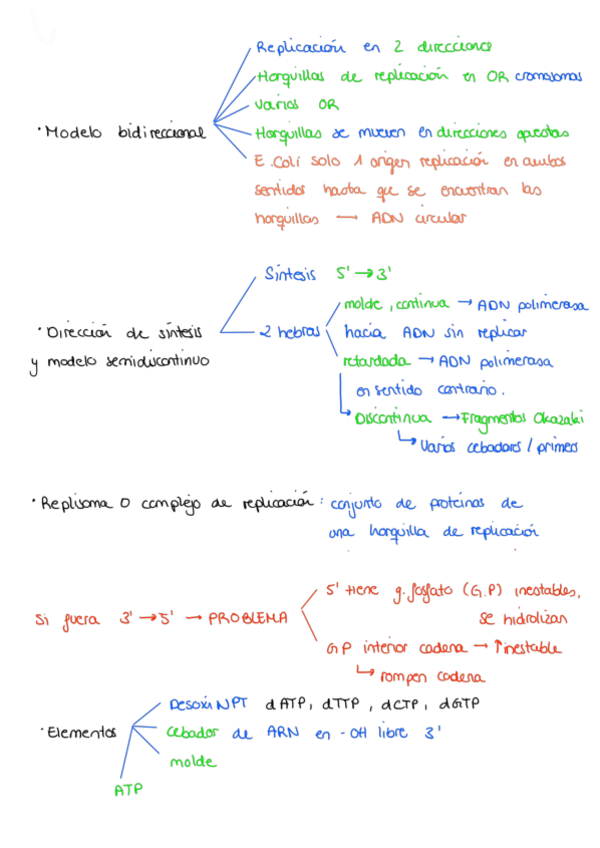 Replicación en 2 direcciones
Horquillas de replicación en OR cromosomas
Varios OR
· Modelo bidireccional
Horquillas se mueven en direcciones opuestas
E. Coli solo 1 origen replicación en ambos
sentidos hasta que se encuentran las
horquillas → ADN circular
Síntesis 5' → 3'
molde, continua → ADN polimerasa
· Dirección de síntesis
2 hebras
hacia ADN sin replicar
y modelo semidiscontinuo
retardada → ADN polimerasa
en sentido contrario.
Discontinua → Fragmentos Okazaki
↳ Varios cebadores / primers
· Replisoma o complejo de replicación: conjunto de proteínas de
una horquilla de replicación
5' tiene g. fosfato (G.P) inestables,
se hidrolizan
Si fuera 3' → 5' → PROBLEMA
GP interior cadena → ↑inestable
↳ rompen cadena
Desoxi NPT dATP, dTTP, dCTP, dGTP
· Elementos
cebador de ARN en -OH libre 3'
molde
ATP